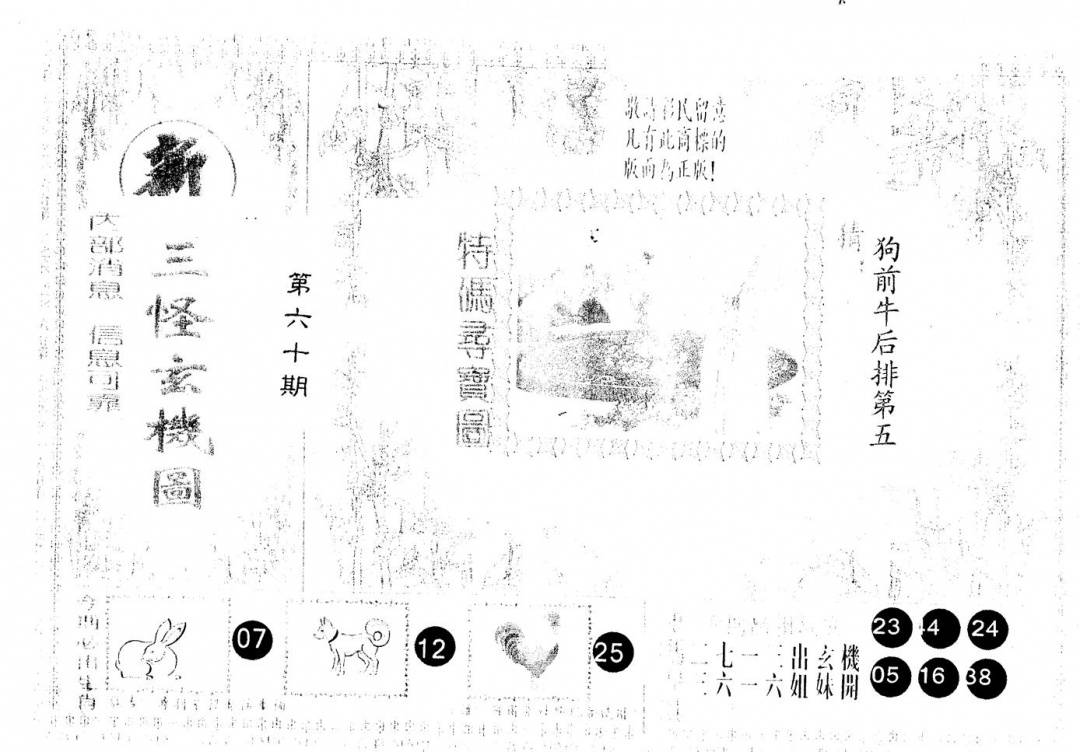 新
三怪玄機圖
内部消息 信息可靠
第六十期
敬請彩民留意
凡有此商標的
版面為正版!
特碼尋寶圖
猜:
狗前牛后排第五
今期必出生肖
07
12
25
二七一三出玄機
三六一六姐妹開
23 4 24
05 16 38